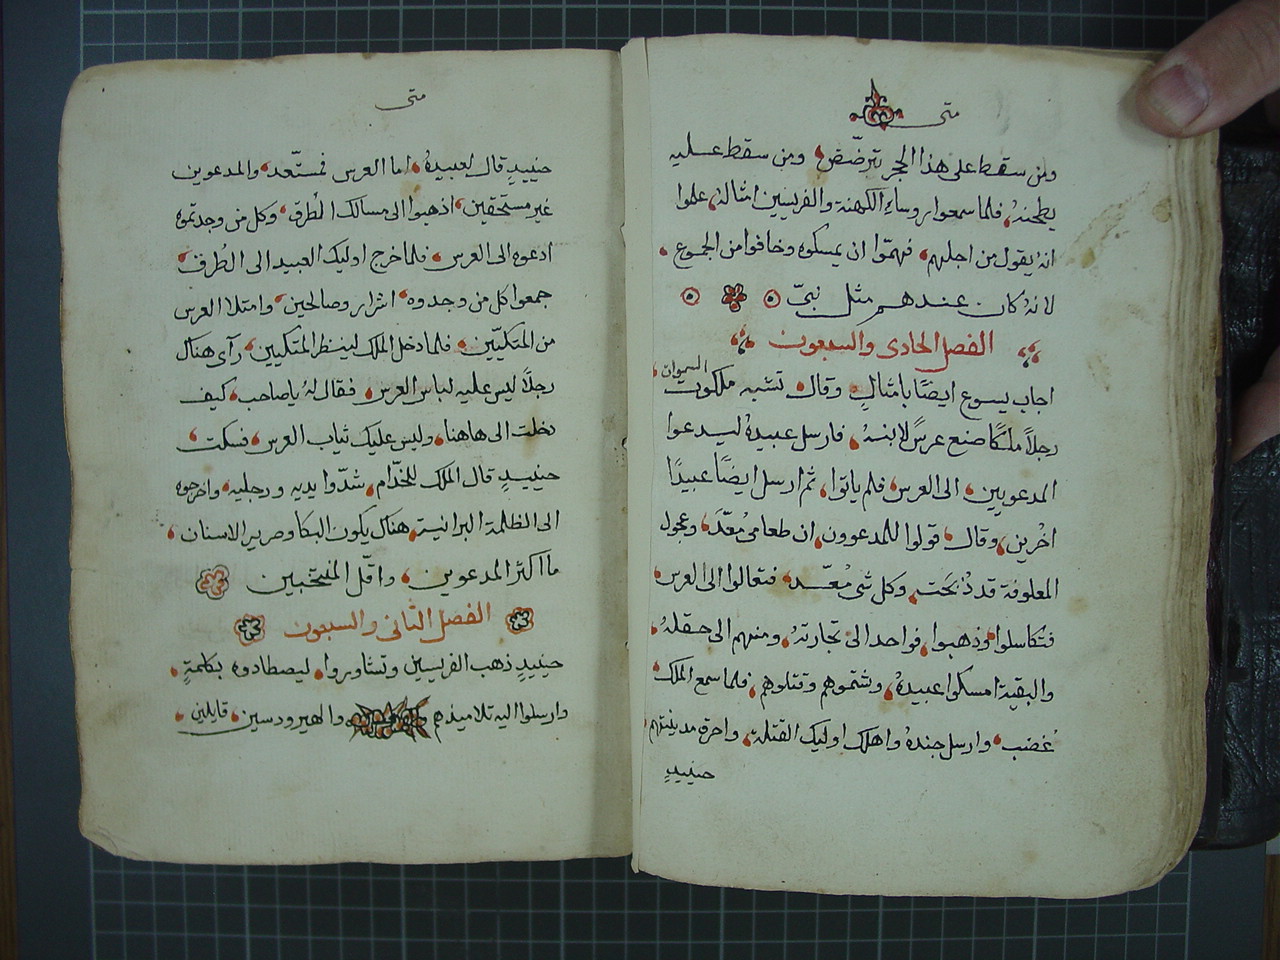 متى
ومن سقط على هذا الحجر يترضّض، ومن سقط عليه
يطحنهُ، فلما سمعوا روساءِ الكهنة والفريسيين امثالهُ، علموا
انهُ يقول من اجلهم، فهمّوا ان يمسكوه وخافوا من الجموع،
لانهُ كان عندهم مثل نبيّ
الفصل الحادى والسبعون
اجاب يسوع ايضًا بامثالٍ، وقال، تشبه ملكوت السموات،
رجلاً ملكًا صنع عرسً لابنهُ، فارسل عبيدهُ ليدعوا
المدعويين، الى العرس، فلم ياتوا، ثم ارسل ايضًا عبيدًا
اخرين، وقال، قولوا للمدعوون، ان طعامى مُعّدَ، وعجول
المعلوفة قد ذُبحَت، وكل شى مُعّد، فتعالوا الى العرس،
فتكاسلوا، وذهبوا، فواحد الى تجارتهُ، ومنهم الى حقلهُ،
والبقية امسكوا عبيدهُ، وشتموهم وقتلوهم، فلما سمع الملك،
غضب، وارسل جندهُ واهلك اوليك القتلة، واحرق مدينتهم،
حينيدٍ
متى
حينيدٍ قال لعبيدهُ، اما العرس فمستّعد، والمدعوين
غير مستحقين، اذهبوا الى مسالك الطُرق، وكل من وجدتموه
ادعوه الى العرس، فلما خرج اوليك العبيد الى الطُرق،
جمعوا كل من وجدوه، اشرار وصالحين، وامتلا العرس
من المتكيّين، فلما دخل الملك لينظر المتكيين، رآى هناك
رجلاً ليس عليه لباس العرس، فقال لهُ ياصاحب، كيف
دخلت الى هاهنا، وليس عليك ثياب العرس، فسكت،
حينيدٍ قال الملك للخدّام، شدّوا يديه ورجليه، واخرجوه
الى الظلمة البرانية، هناك يكون البكا وصرير الاسنان،
ما اكثر المدعوين، واقّل المنتخبين
الفصل الثانى والسبعون
حينيدٍ ذهب الفريسيين وتشاوروا، ليصطادوه بكلمةٍ،
وارسلوا اليه تلاميذهم والهيرودسين، قايلين،